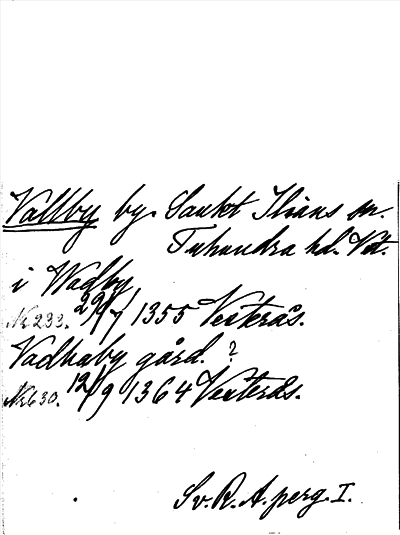 Vallby by. Sankt Ilians sn.
Tuhundra hd. Vstm.
i Wadby
No 233. 29/7 1355 Vesterås.
Vadhaby gård. ?
No 630. 12/9 1364 Vesterås.
Sv. R. A. perg. I.